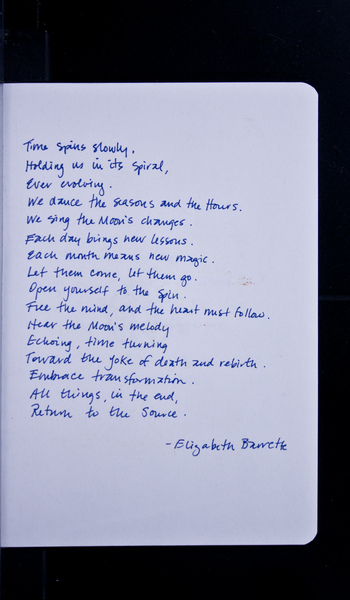 Time spins slowly.
Holding us in its spiral,
Ever evolving.
We dance the seasons and the Hours.
We sing the Moon's changes.
Each day brings new lessons.
Each month means new magic.
Let them come, let them go.
Open yourself to the spin.
Free the mind, and the heart must follow.
Hear the Moon's melody
Echoing, time turning
Toward the yoke of death and rebirth.
Embrace transformation.
All things, in the end,
Return to the Source.
- Elizabeth Barrette